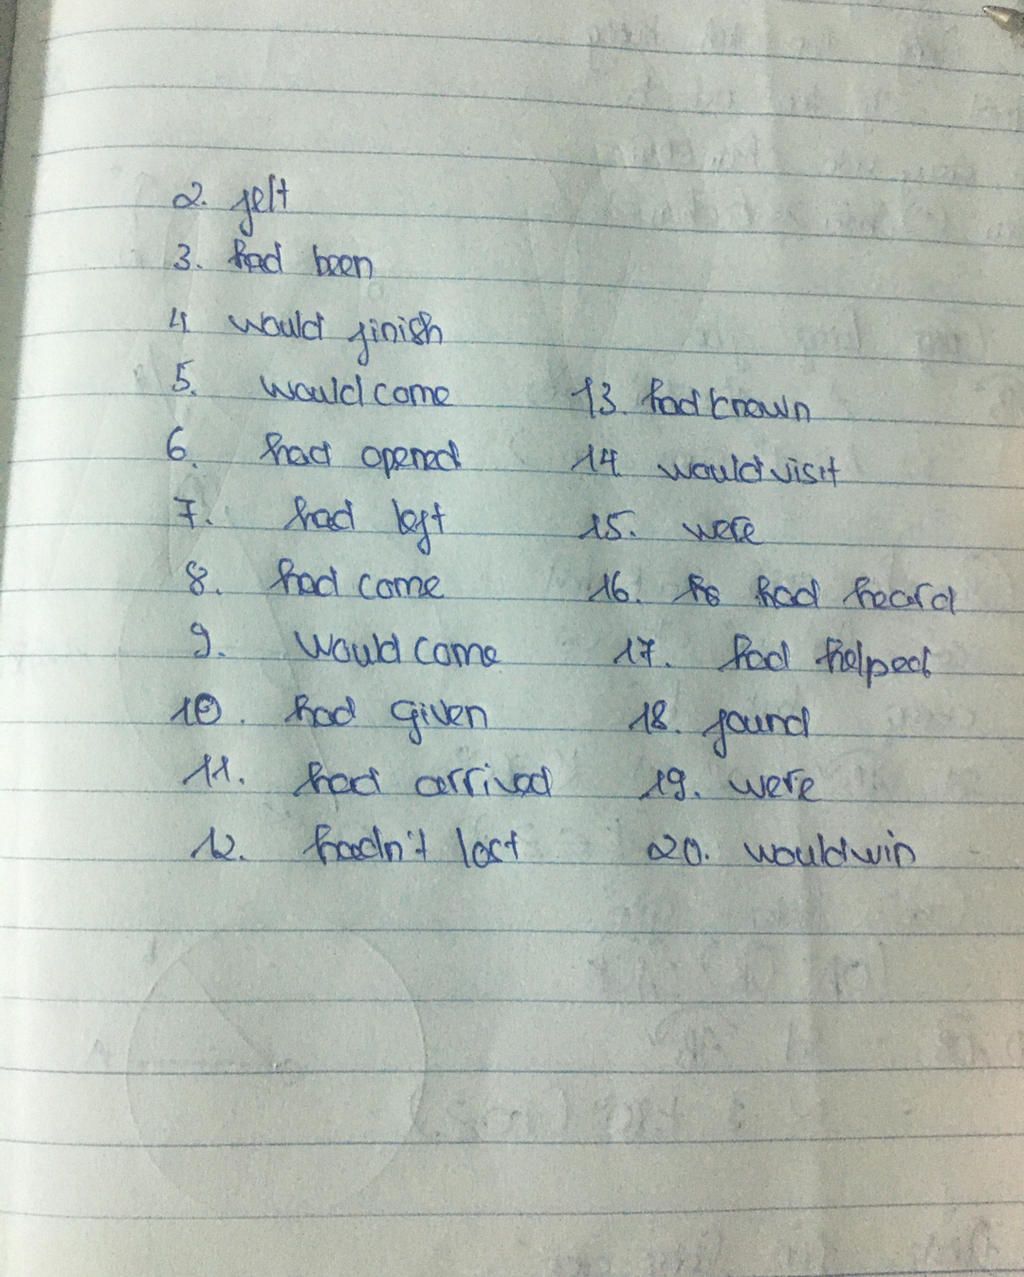 2. felt
3. had been
4 would finish
5. would come
6. had opened
7. had left
8. had come
9. would come
10. had given
11. had arrived
12. hadn't lost
13. had known
14 would visit
15. were
16. had heard
17. had helped
18. found
19. were
20. would win